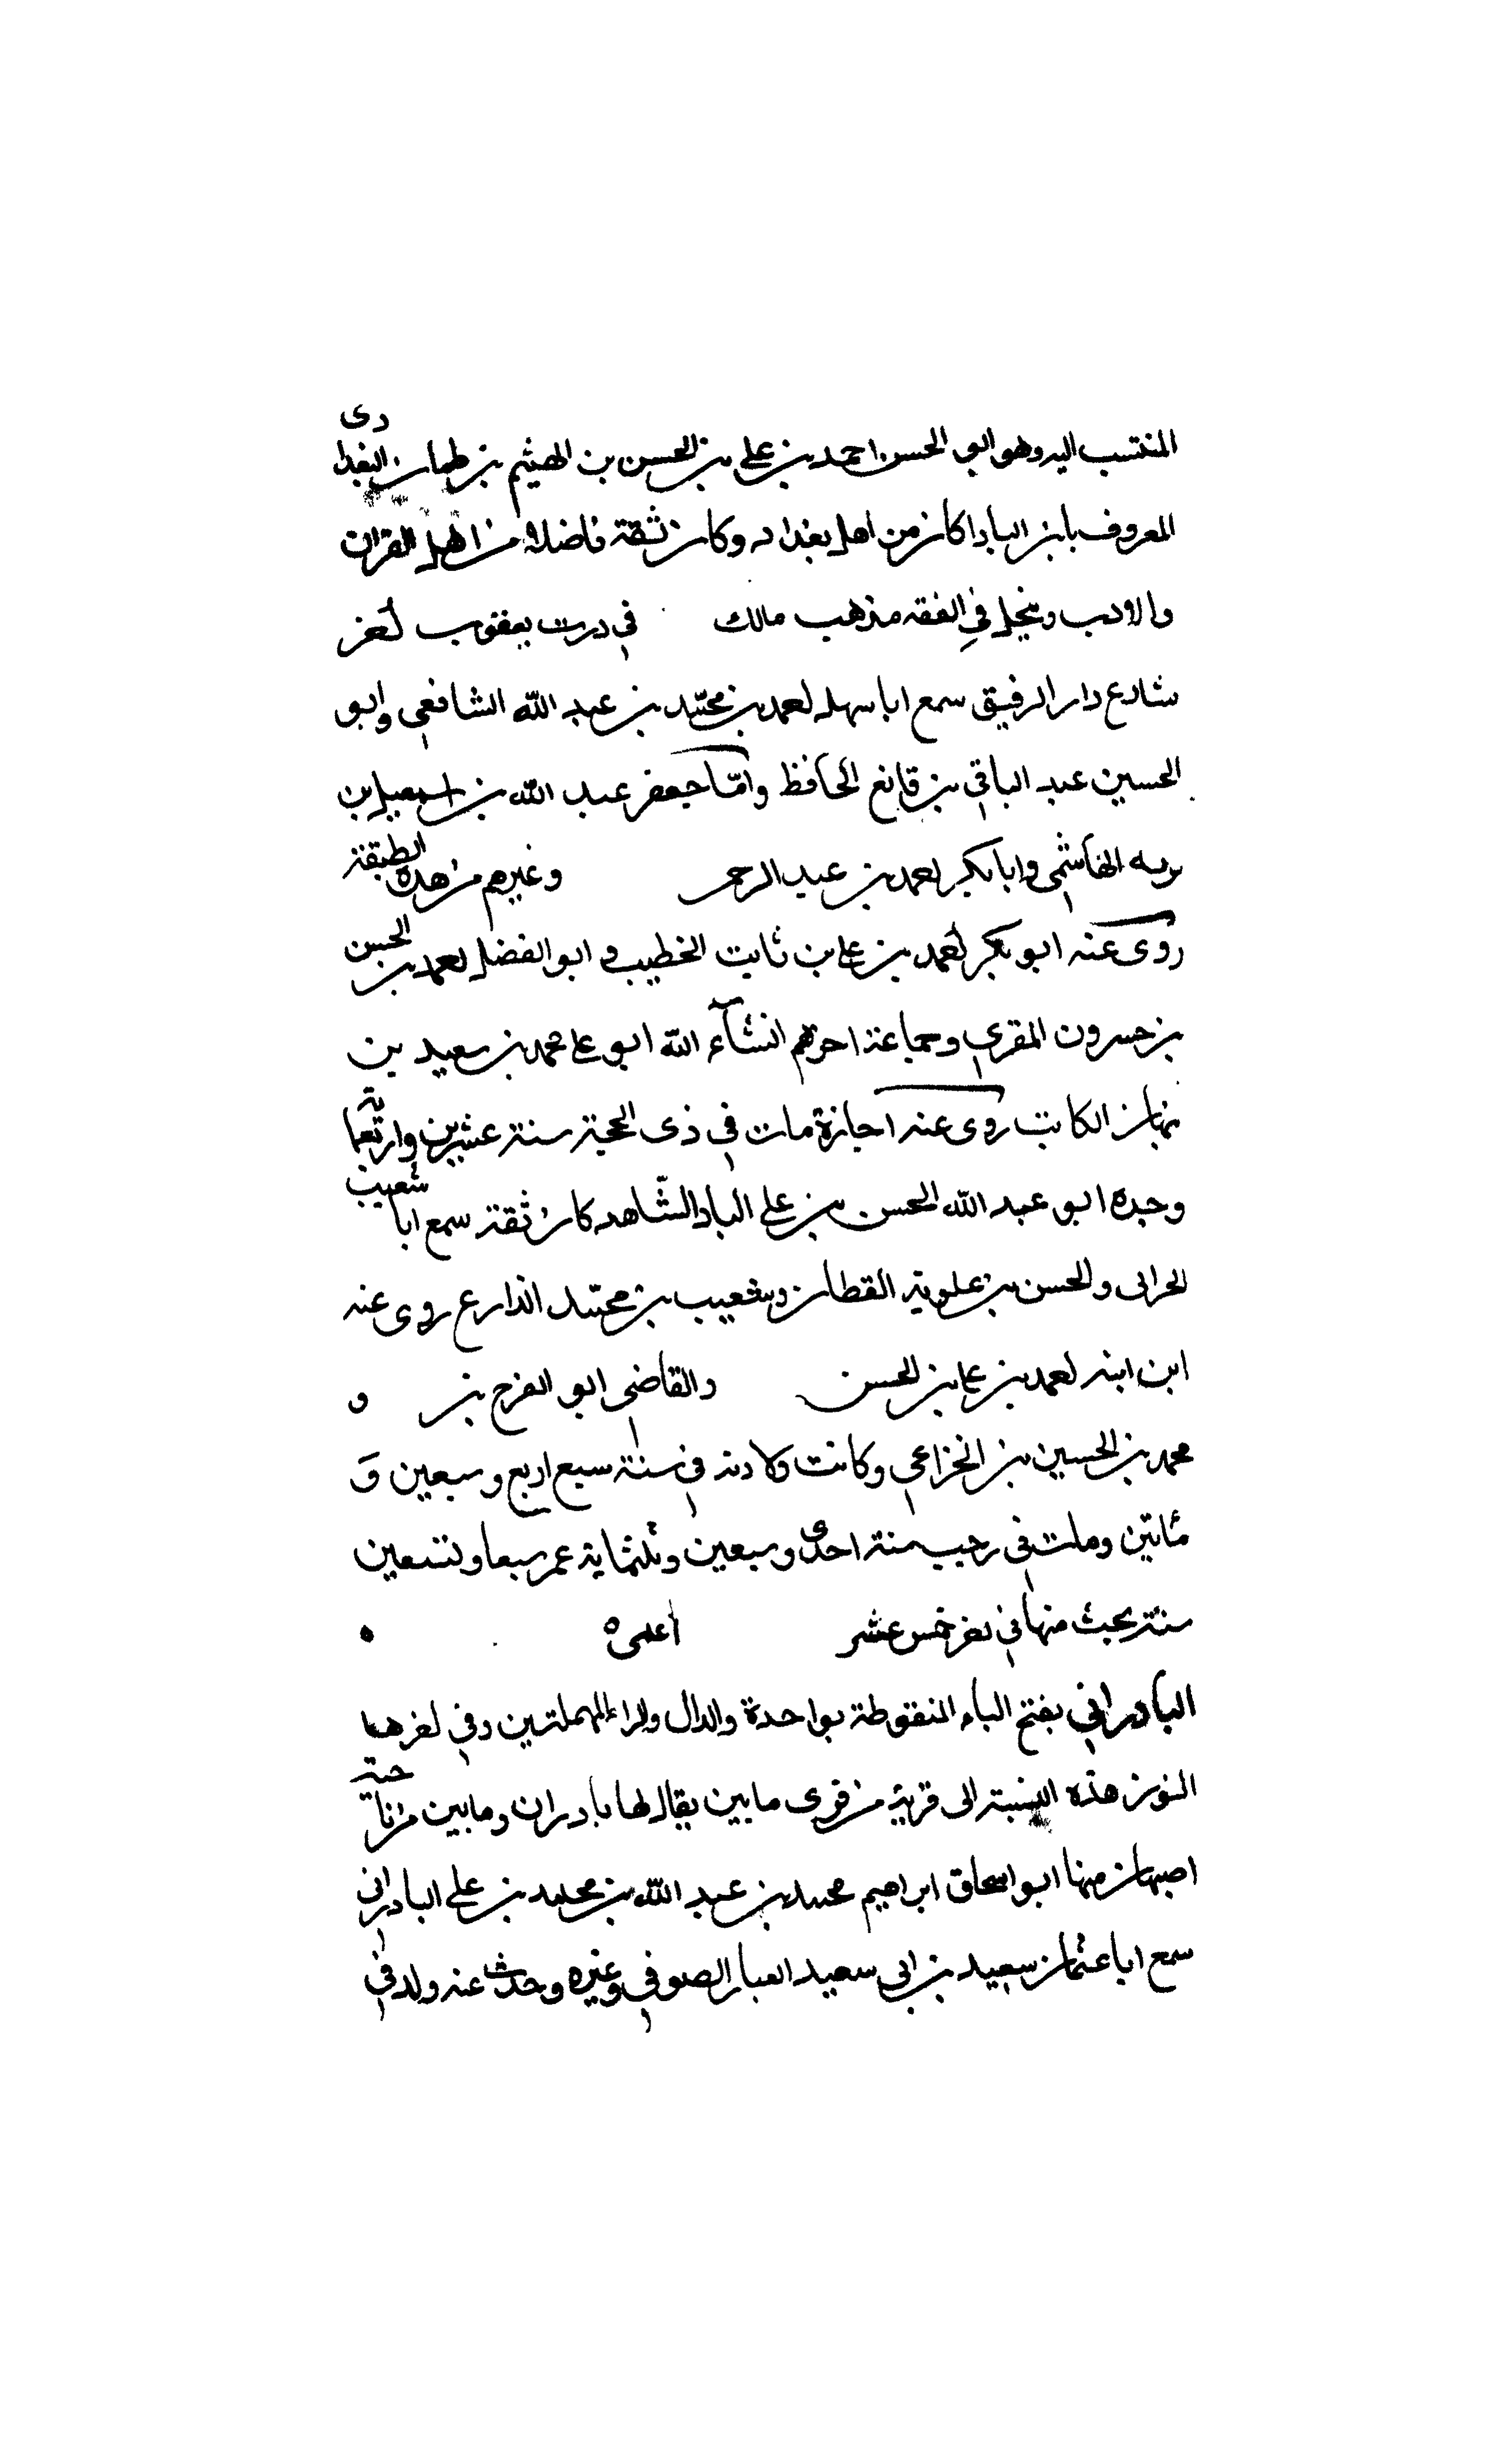 المنتسب اليه وهو ابو الحسن احمد بن علي بن الحسن بن الهيثم بن طهمان البغدادى
المعروف بابن البادا كان من اهل بغداد وكان ثقة فاضلا من اهل القران
والادب وينتحل في الفقه مذهب مالك في درب يعقوب
شارع دار الرقيق سمع ابا سهل احمد بن محمد بن عبد الله الشافعي وابو
الحسين عبد الباقي بن قانع الحافظ وابا جعفر عبد الله بن اسمعيل بن
بريه الهاشمي وابا بكر احمد بن عبد الرحمن وغيرهم من هذه الطبقة
روى عنه ابو بكر احمد بن علي بن ثابت الخطيب و ابو الفضل احمد بن الحسن
بن خيرون المقري وجماعة اخرهم انشآء الله ابو علي محمد بن سعيد بن
نبهان الكاتب روى عنه اجازة مات في ذى الحجة سنة عشرين واربعماية
وجده ابو عبد الله الحسن بن علي الباد الشاهد كان ثقة سمع ابا شعيب
الحرانى والحسن بن علوية القطان وشعيب بن محمد الذارع روى عنه
ابن ابنه احمد بن علي بن الحسن والقاضى ابو الفرج بن و
محمد بن الحسين بن الخزاعي وكانت ولادته في سنة سبع اربع وسبعين و
مائتين ومات في رجب سنة احدى وسبعين وثلثماية عمر سبعا وتسعين
سنة بحث منها في خمس عشر اعمى ه
البادراني بفتح الباء المنقوطة بواحدة والدال والراء المهملتين وفي اخرها
النون هذه النسبة الى قرية من قرى مابين يقال لها بادران ومابين من ناحية
اصبهان منها ابو اسحاق ابراهيم محمد بن عبد الله بن محمد بن علي البادراني
سمع ابا عثمان سعيد بن ابى سعيد العيار الصوفي وغيره وحدث عنه ولد في